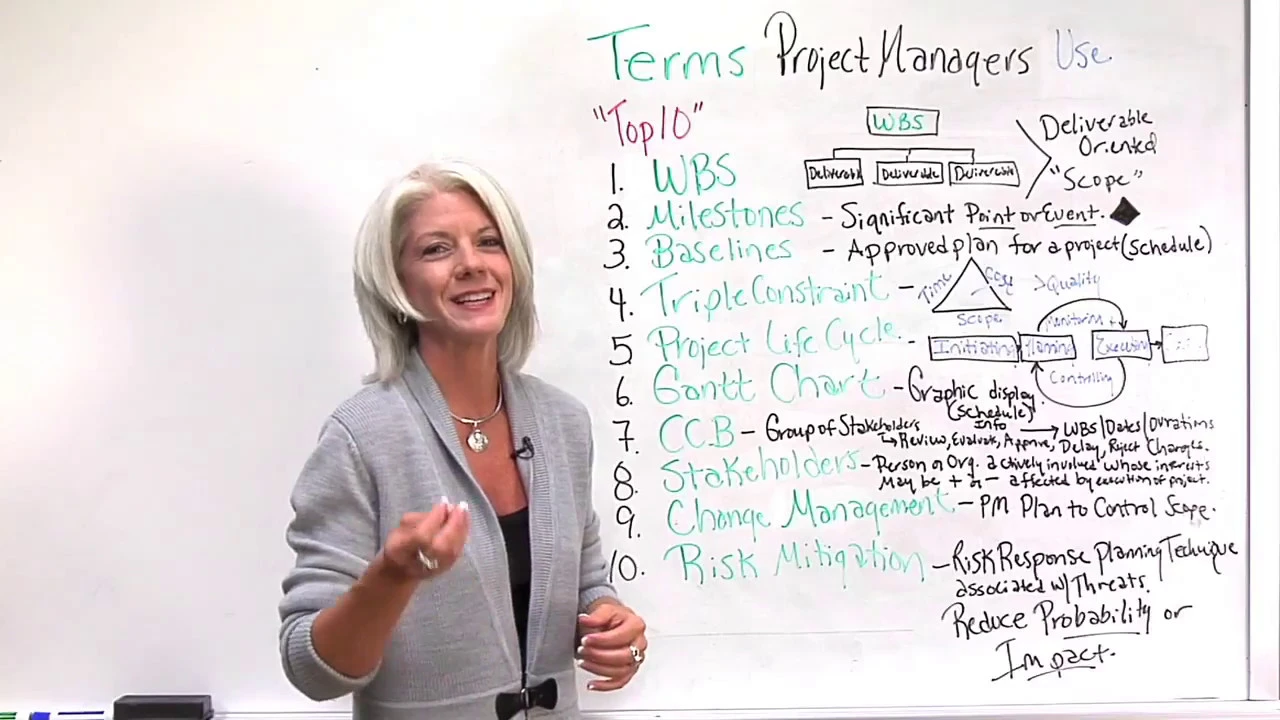 Terms Project Managers Use
"Top 10"
WBS
Deliverable Deliverable Deliverable
Deliverable
Oriented
"Scope"
1. WBS
2. Milestones - Significant Point or Event.
3. Baselines - Approved plan for a project (schedule)
4. Triple Constraint - Time Cost > Quality
Scope
5. Project Life Cycle - Initiating Planning Executing
Monitoring +
Controlling
6. Gantt Chart - Graphic display
(schedule)
Info → WBS/Dates/Durations
7. CCB - Group of Stakeholders
Review, Evaluate, Approve, Delay, Reject Changes.
8. Stakeholders - Person or Org. actively involved whose interests
May be + or - affected by execution of project.
9. Change Management - PM Plan to Control Scope.
10. Risk Mitigation - Risk Response Planning Technique
associated w/ Threats.
Reduce Probability or
Impact.